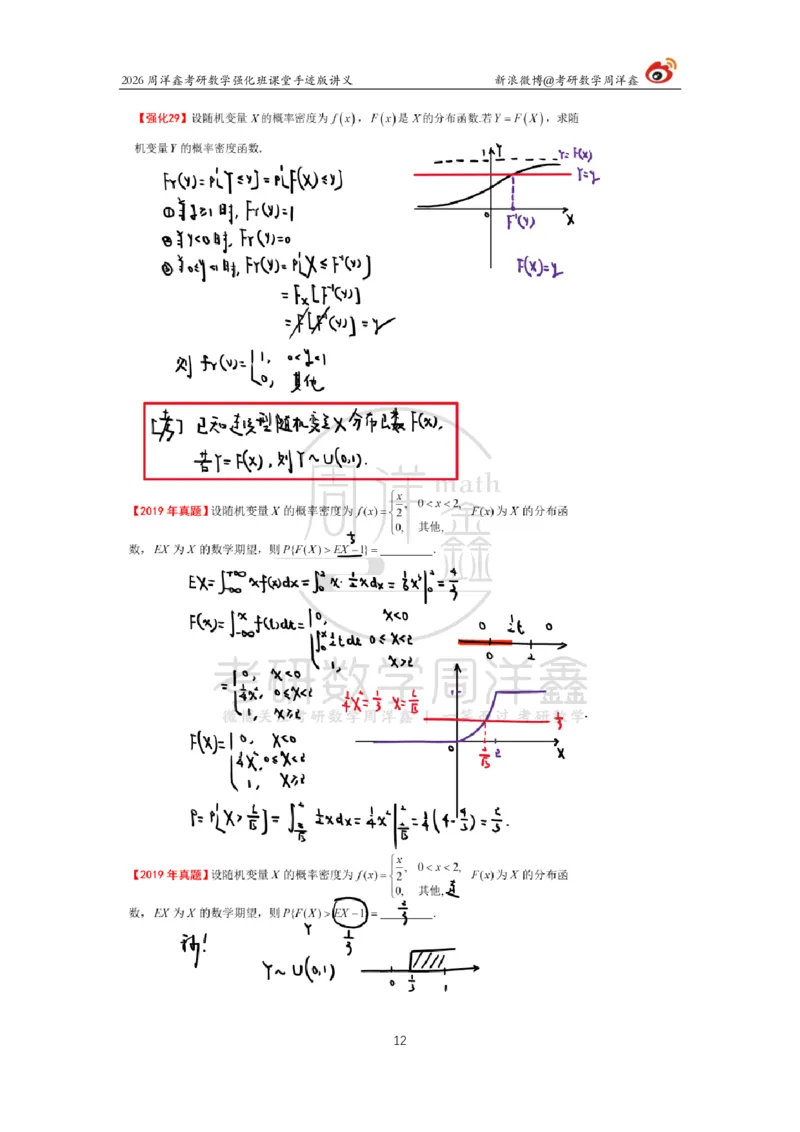 2026 周洋鑫考研数学强化班课堂手迹版讲义 新浪微博@考研数学周洋鑫
【强化29】设随机变量 X 的概率密度为 f(x)，F(x) 是 X 的分布函数.若 Y = F(X)，求随
机变量 Y 的概率密度函数.
F_Y(y)=P{Y≤y}=P{F(X)≤y}
①当y≥1时, F_Y(y)=1
②当y<0时, F_Y(y)=0
③当0≤y<1时, F_Y(y)=P{X≤F⁻¹(y)}
=F_X[F⁻¹(y)]
=F[F⁻¹(y)]=y
则 f_Y(y)={1, 0<y<1
0, 其他
1 Y Y=F(x)
Y=y
0 F⁻¹(y) X
F(x)=y
[考] 已知连续型随机变量X分布函数F(x),
若Y=F(X), 则Y~U(0,1).
周洋鑫 math
【2019 年真题】设随机变量 X 的概率密度为 f(x)={x/2, 0<x<2, 0, 其他, F(x) 为 X 的分布函
数，EX 为 X 的数学期望，则 P{F(X) > EX −1} = ________.
1/3
EX=∫_{-∞}^{+∞} xf(x)dx=∫_0^2 x·1/2xdx=1/6x³|_0^2=4/3
F(x)=∫_{-∞}^x f(t)dt={0, x<0
∫_0^x 1/2tdt 0≤x<2
1, x≥2
0 1/2t 0
0 2
={0, x<0
1/4x², 0≤x<2
1, x≥2
1/4x²=1/3 x=2/√3
1
1/3
0 2/√3 2 X
考研数学周洋鑫
F(X)={0, X<0
1/4X², 0≤X<2
1, X≥2
P=P{X>2/√3}=∫_{2/√3}^2 1/2xdx=1/4x²|_{2/√3}^2=1/4(4-4/3)=2/3.
【2019 年真题】设随机变量 X 的概率密度为 f(x)={x/2, 0<x<2, 0, 其他, F(x) 为 X 的分布函
连
数，EX 为 X 的数学期望，则 P{F(X) > EX −1} = ________.
2/3
Y 1/3
秒!
Y~U(0,1)
0 1/3 1
12